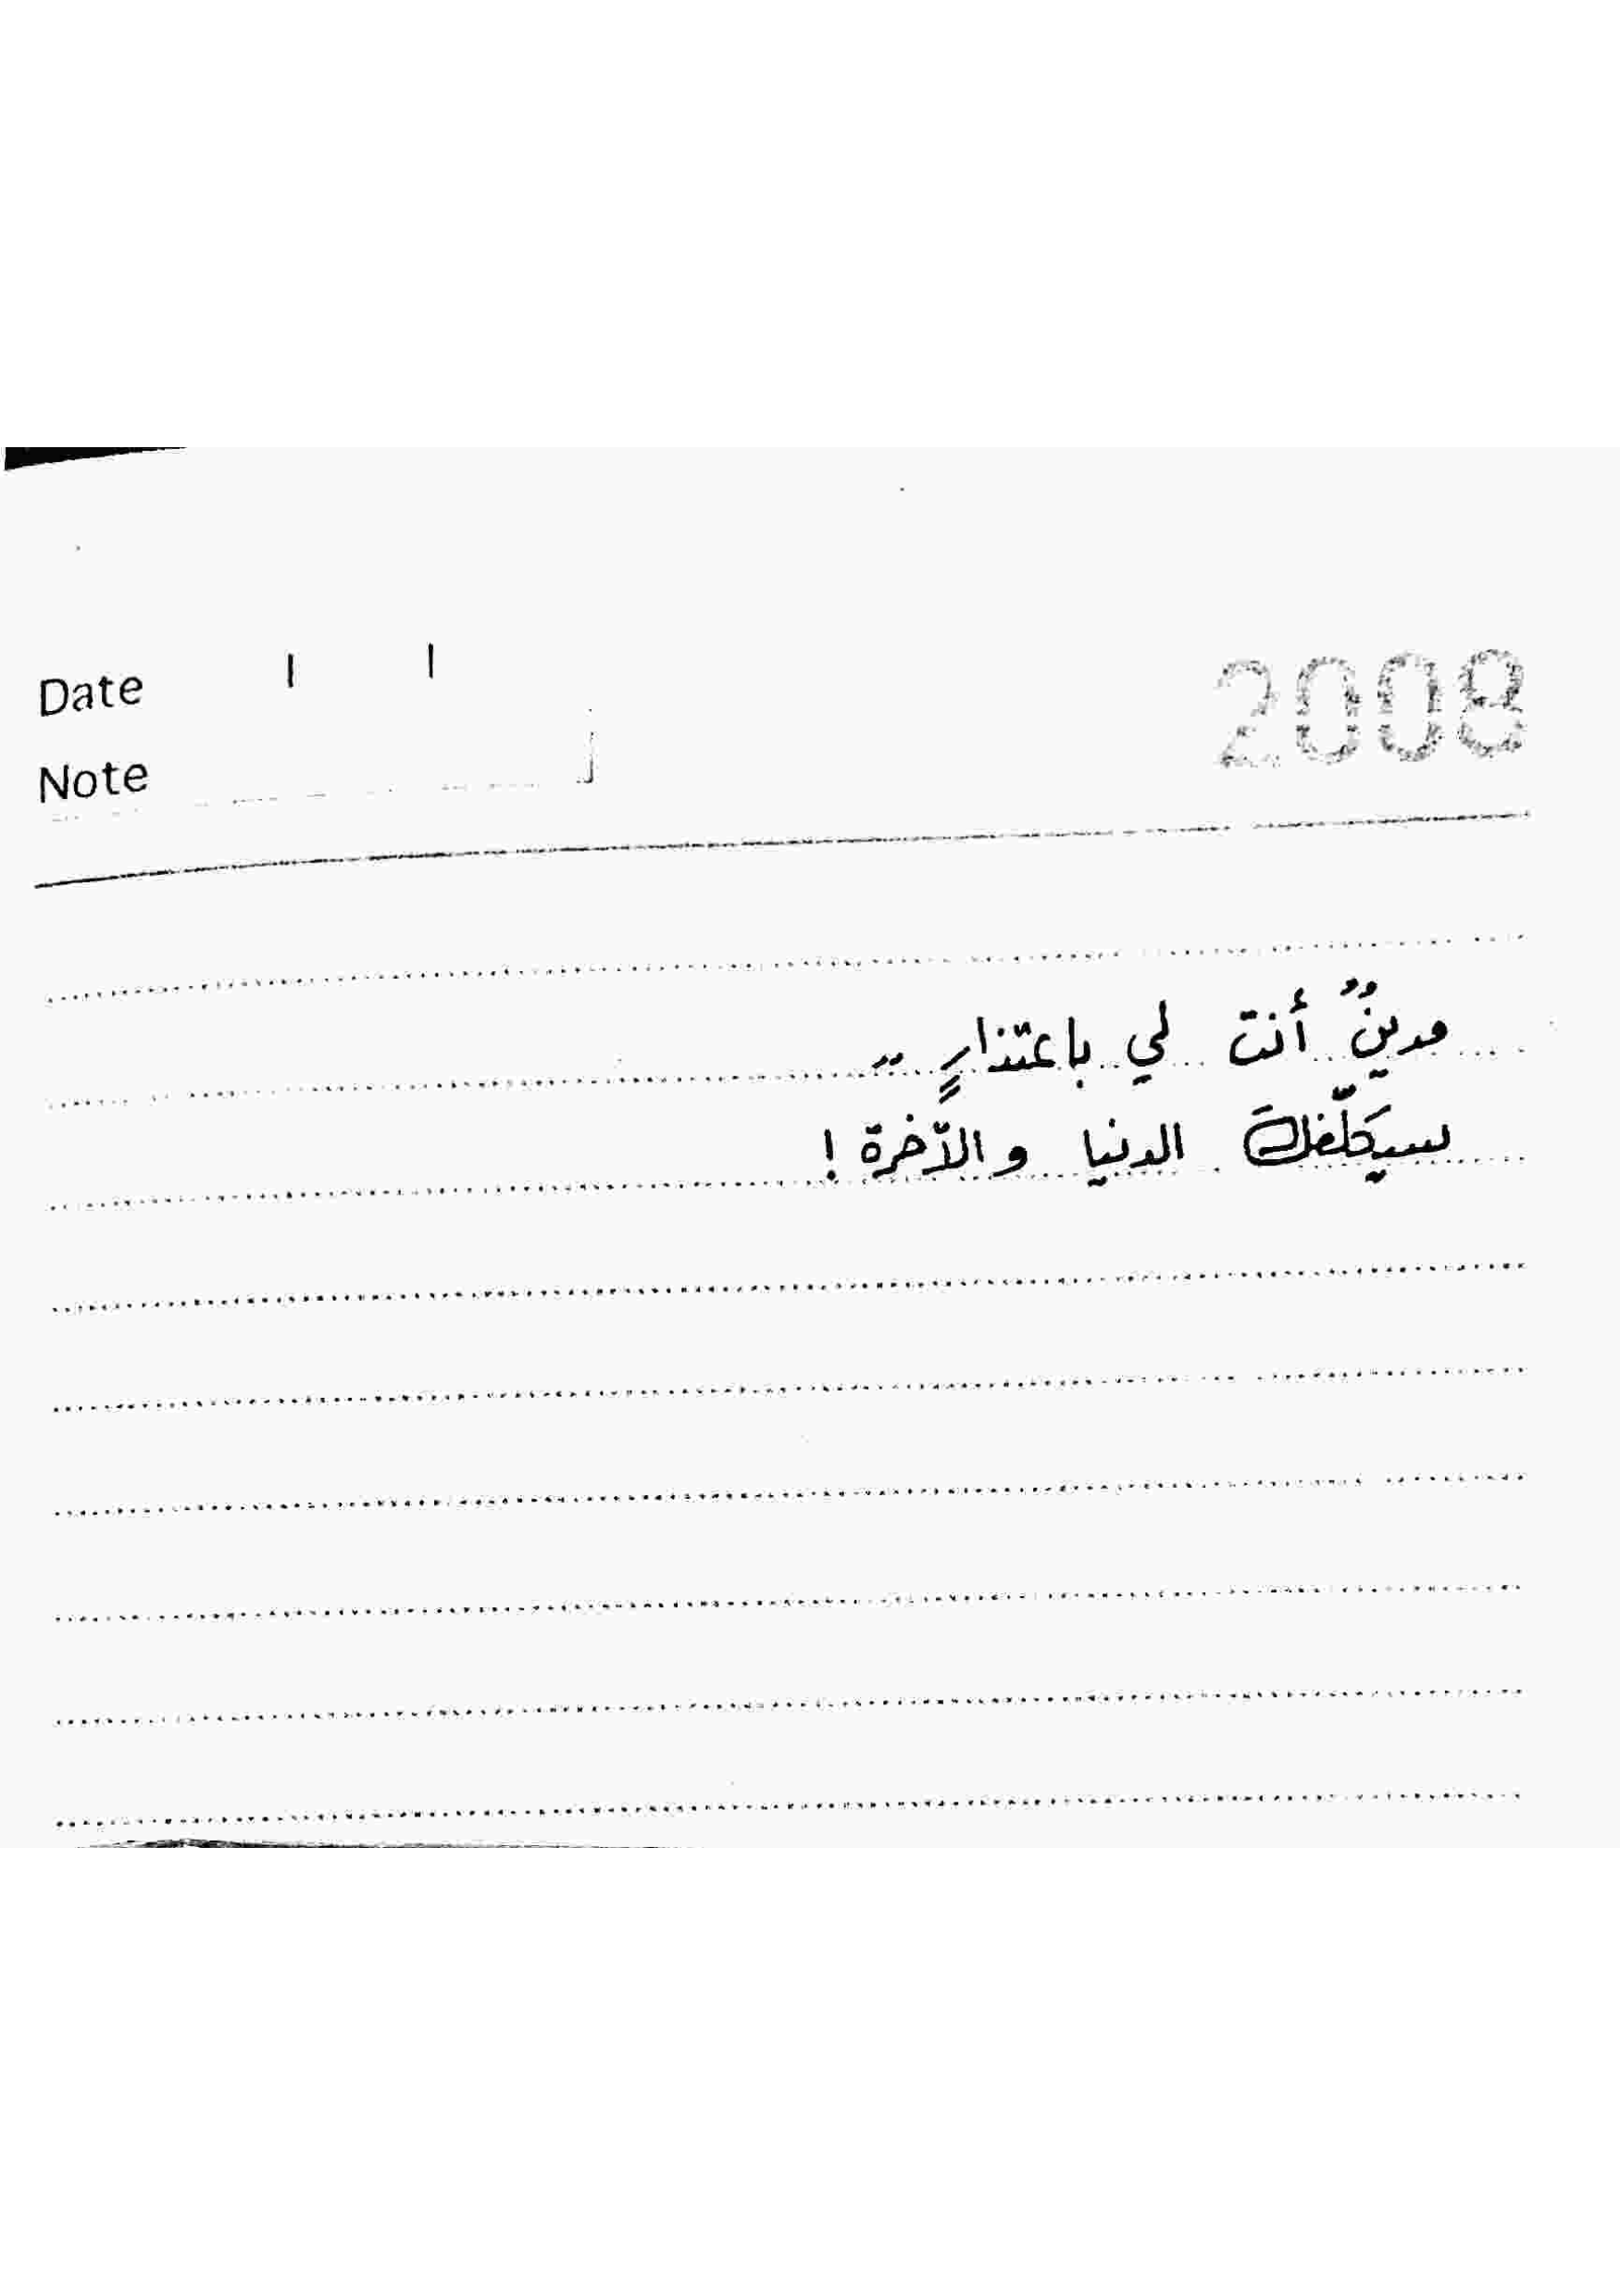 Date / /
2008
Note
مدينٌ أنت لي باعتذارٍ ..
سيكلّفكَ الدنيا والآخرة !